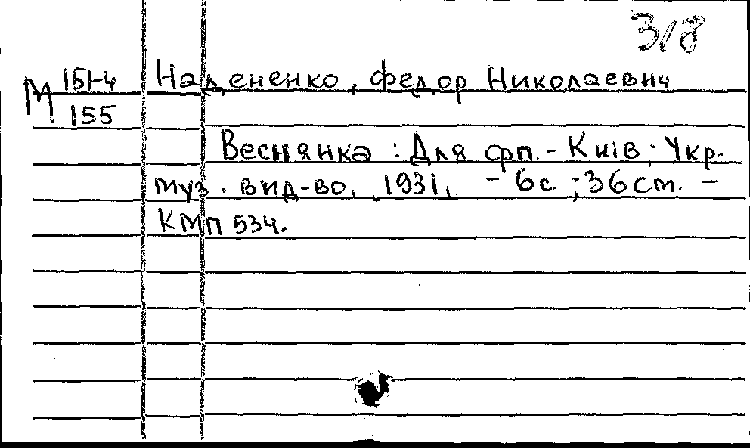 318
М 151-4 Надененко, Федор Николаевич
155
Веснянка : Для фп. - Київ : Укр.
муз. вид-во, 1931, - 6 с ; 36 ст. -
КМП 534.